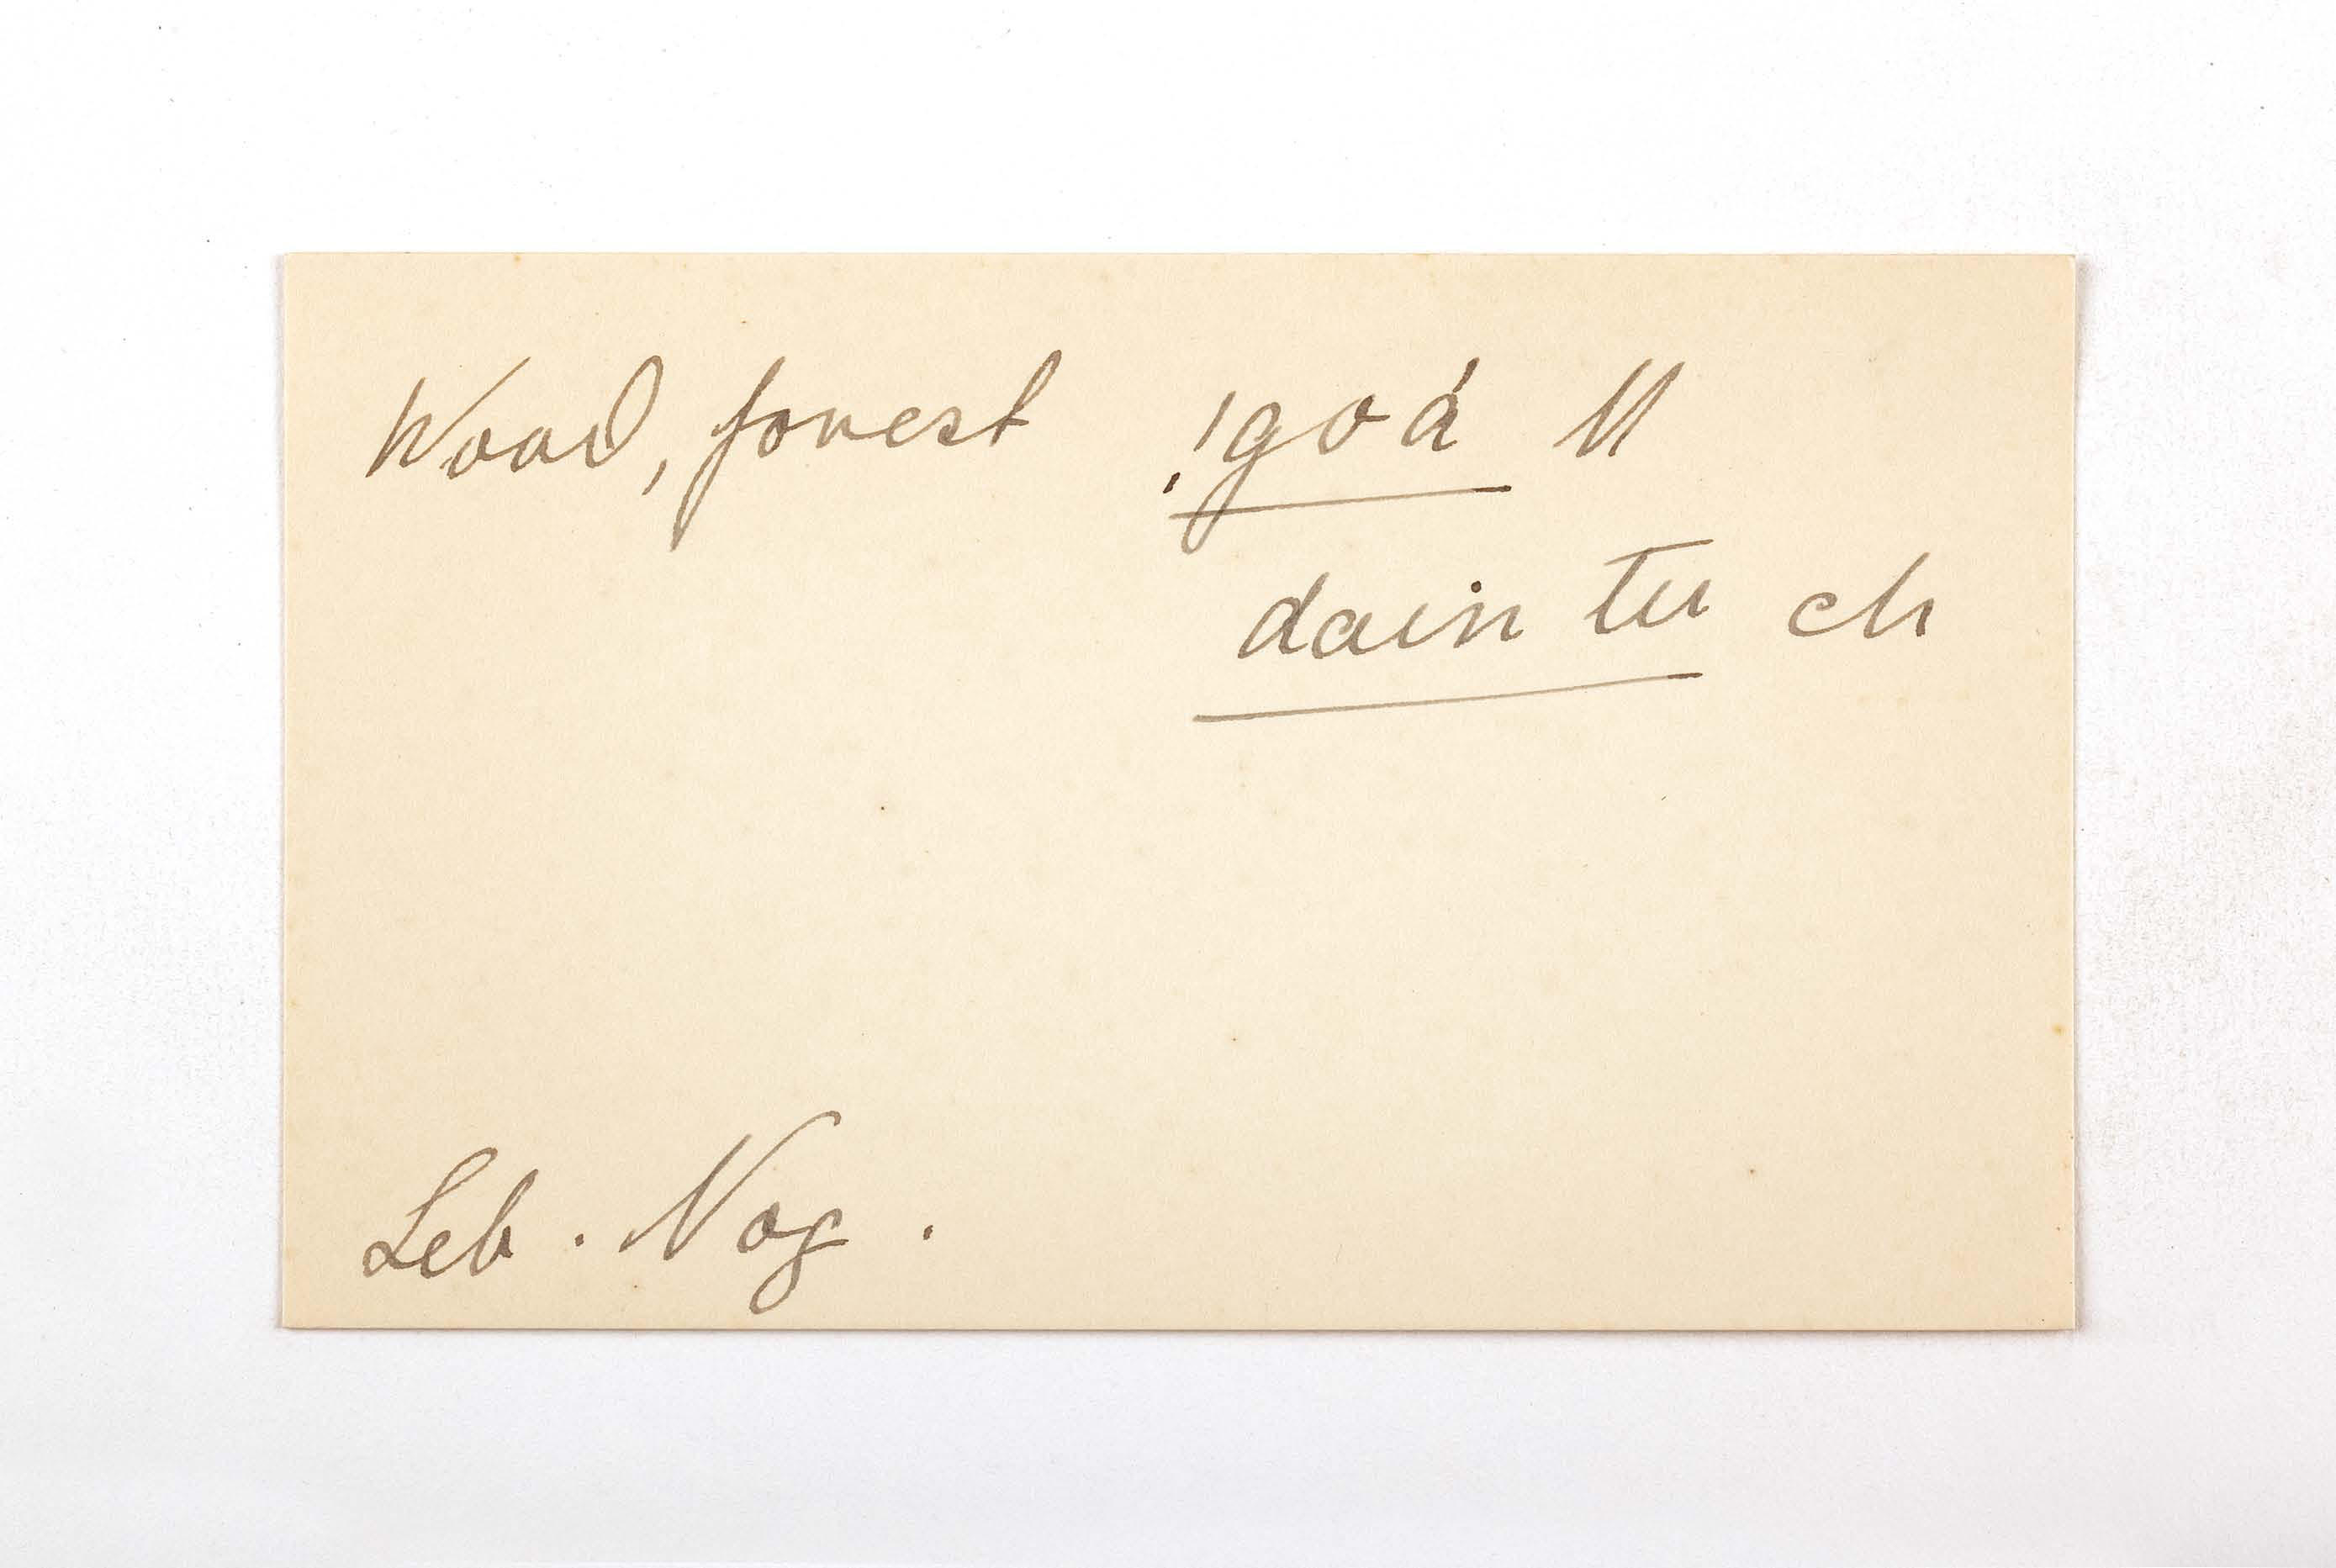 Wood, forest !goá M
dain tu ch
Leb. Nog.